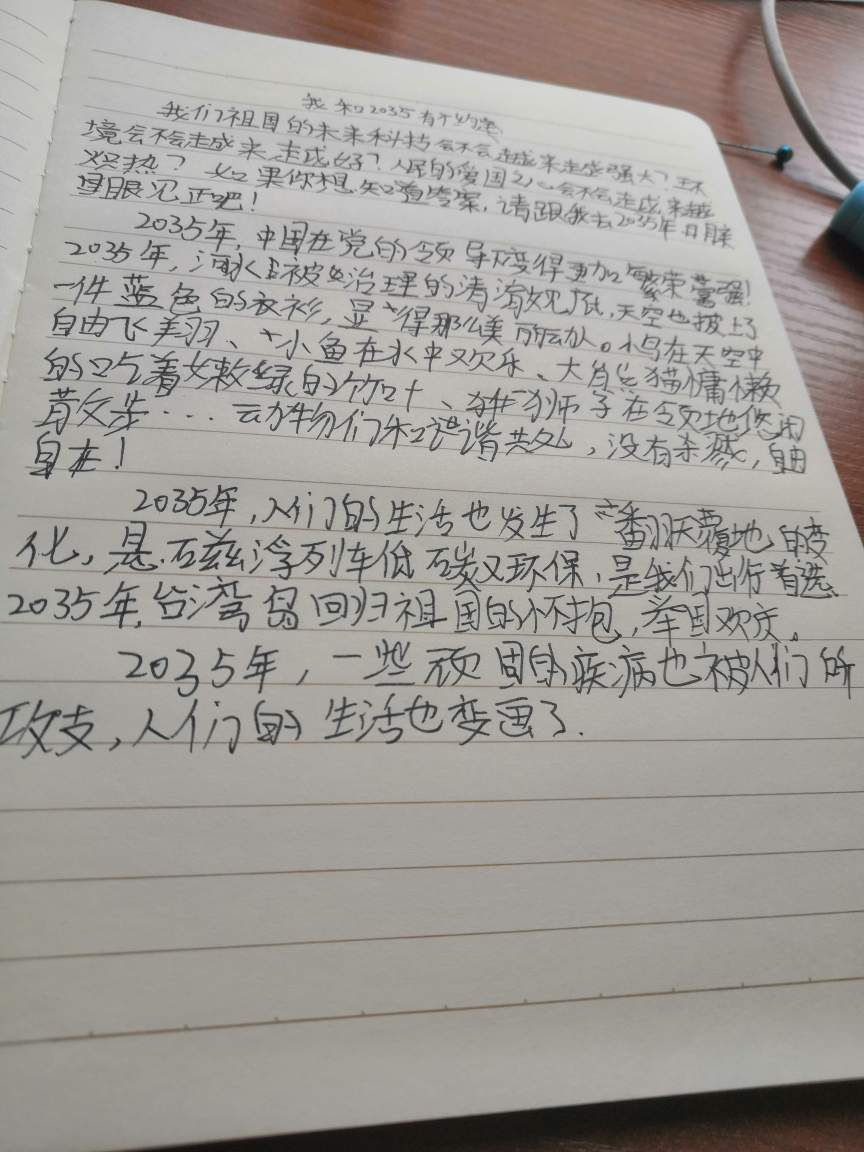 我和2035有个约定
我们祖国的未来科技会不会越来越强大？环
境会不会越来越好？人民的爱国之心会不会越来越
炽热？如果你想知道答案，请跟我去2035年用亲
身眼见证吧！
2035年，中国在党的领导下变得更加繁荣富强！
2035年，河水被治理的清澈见底，天空也披上了
一件蓝色的衣衫，显得那么美丽动人。小鸟在天空中
自由飞翔、小鱼在水中欢乐、大熊猫慵懒
的吃着嫩绿的竹叶、雄狮子在领地悠闲
散步…动物们和谐共处，没有杀戮，自由
自在！
2035年，人们的生活也发生了翻天覆地的变
化，悬磁浮列车低碳又环保，是我们出行首选、
2035年，台湾岛回归祖国的怀抱，举国欢庆。
2035年，一些顽固的疾病也被人们所
攻克，人们的生活也变